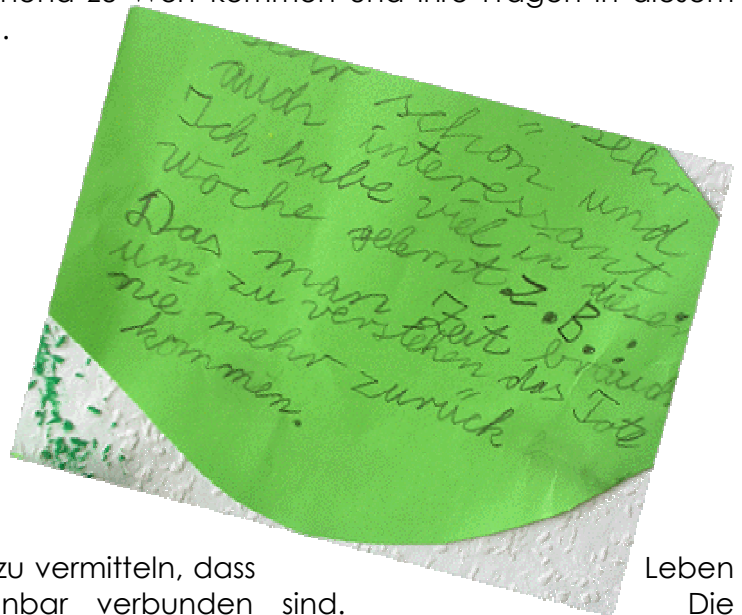 zu Wort kommen und ihre Fragen in diesem
.
sehr schön " sehr
auch interessant und
Ich habe viel in dieser
Woche gelernt Z.B.:
Das man Zeit brauch
um zu verstehen das Tote
nie mehr zurück
kommen.
zu vermitteln, dass Leben
verbunden sind. Die